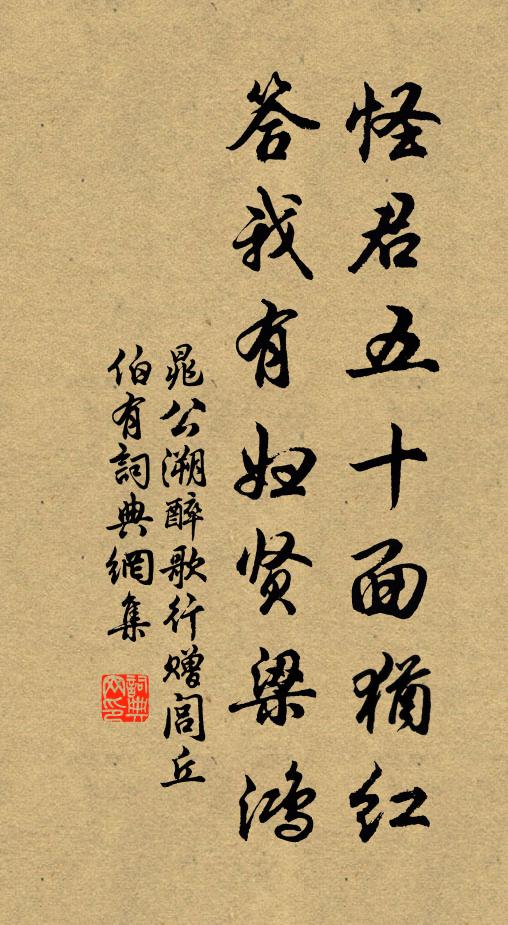 怪君五十面犹红
答我有妇贤梁鸿
晁公溯醉歌行赠闾丘
伯有詞典網集
詞典